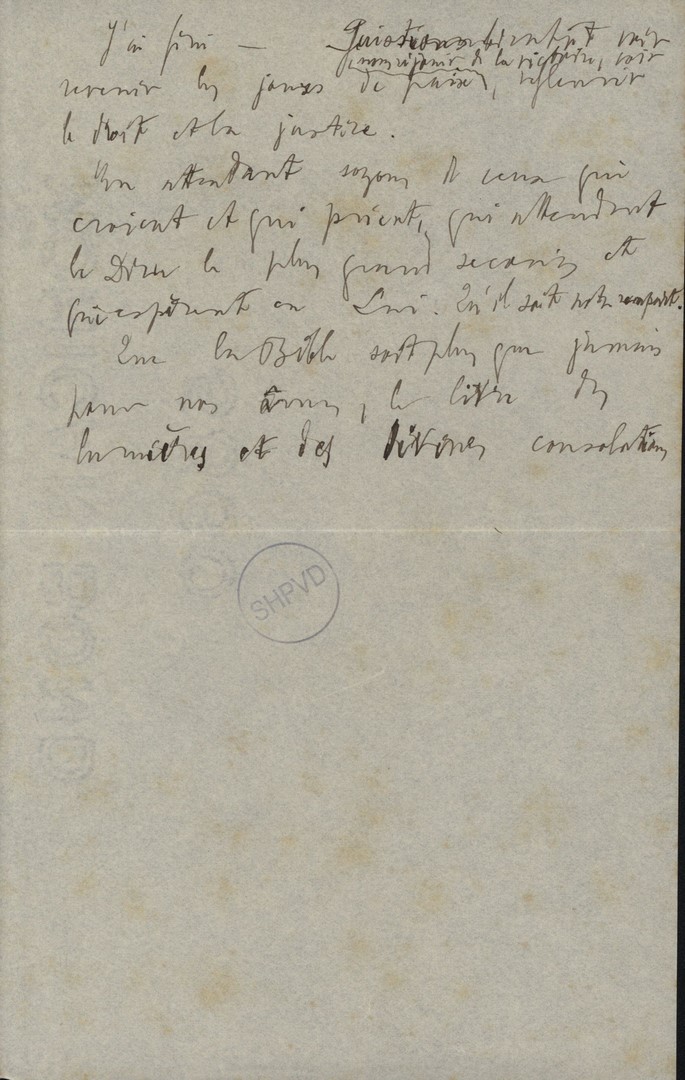 J'ai fini — Puissions bientôt voir
nous réjouir de la victoire, voir
revenir les jours de paix, refleurir
le droit et la justice.
En attendant soyons de ceux qui
croient et qui prient, qui attendent
le Dieu le plus grand secours et
qui espèrent en Lui. Qu'il soit notre rempart.
Que la Bible soit plus que jamais
pour nos âmes, le livre des
lumières et des divines consolations
SHPVD